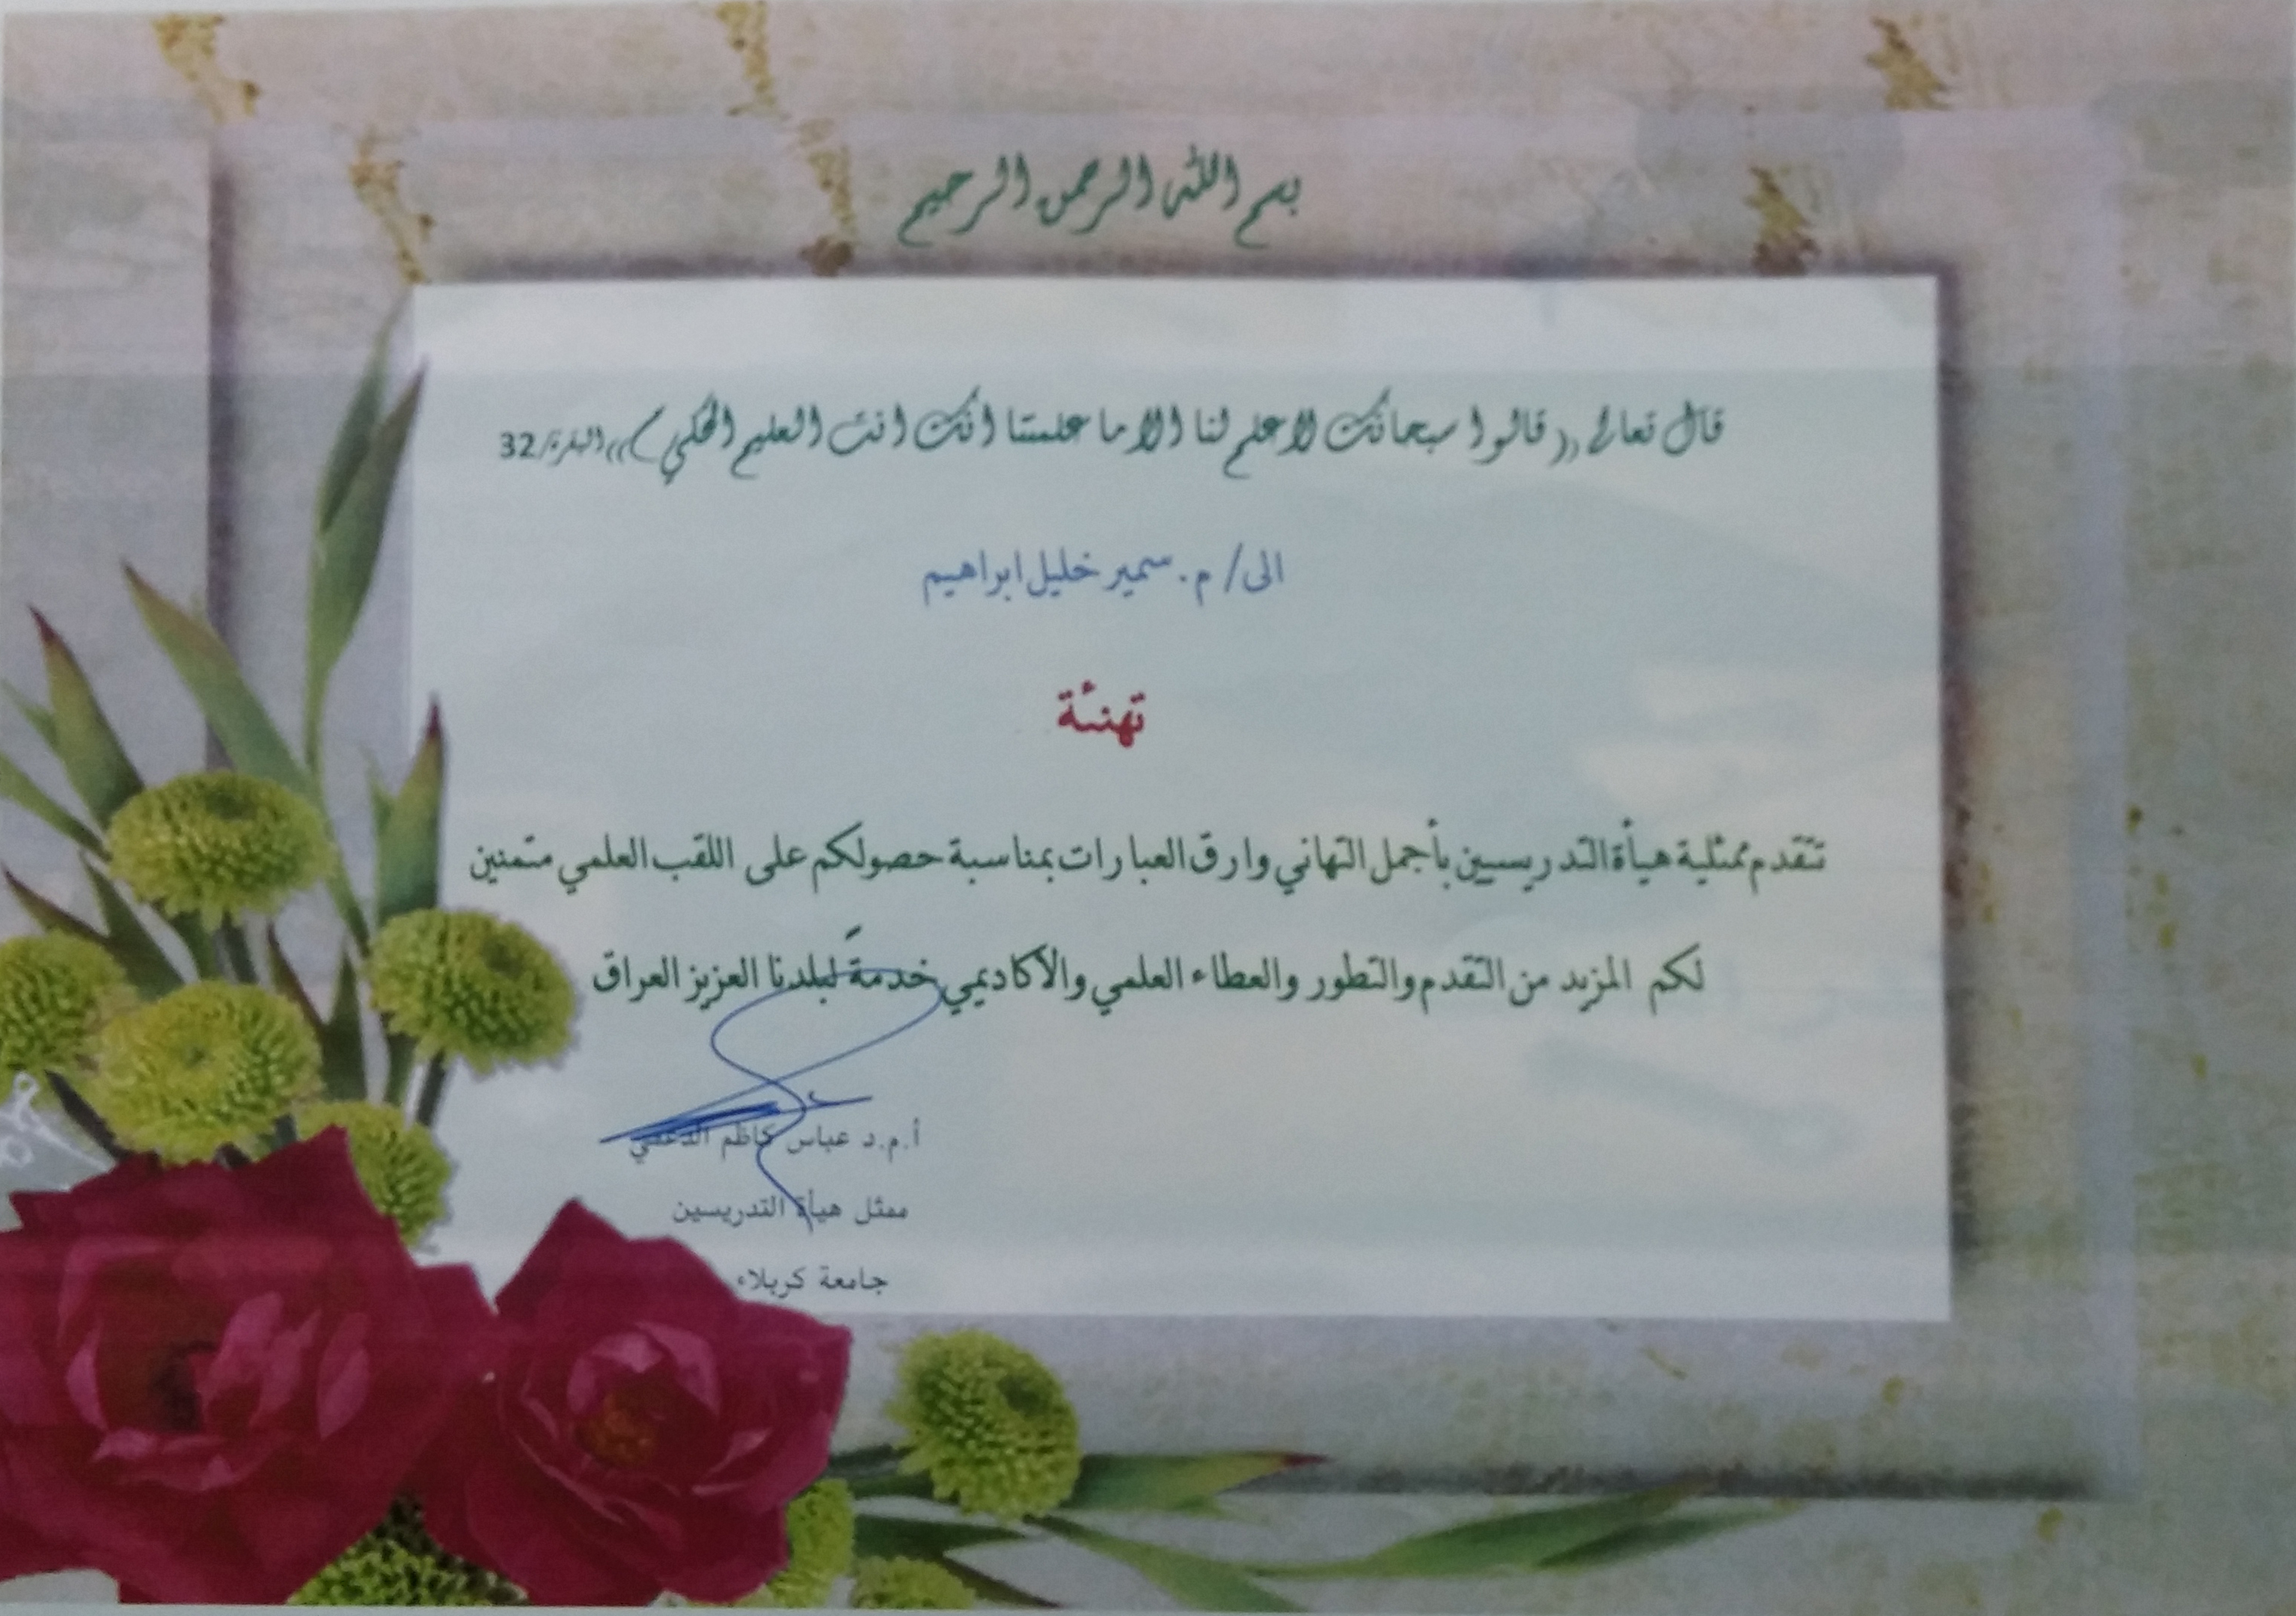 بسم الله الرحمن الرحيم
قال تعالى ((قالوا سبحانك لاعلم لنا الا ما علمتنا انك انت العليم الحكيم)) البقرة/32
الى/ م. سمير خليل ابراهيم
تهنئة
تتقدم ممثلية هيأة التدريسيين بأجمل التهاني وارق العبارات بمناسبة حصولكم على اللقب العلمي متمنين
لكم المزيد من التقدم والتطور والعطاء العلمي والاكاديمي خدمةً لبلدنا العزيز العراق
أ.م.د عباس كاظم الدعمي
ممثل هيأة التدريسين
جامعة كربلاء